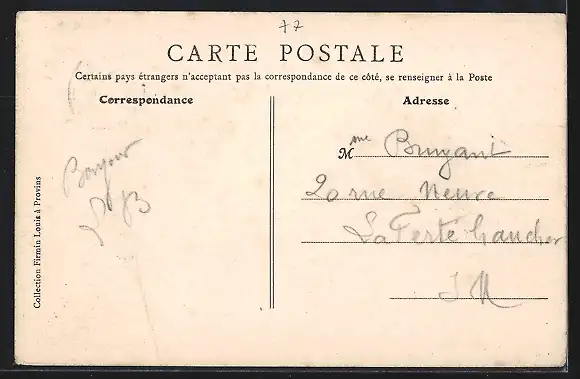 77
CARTE POSTALE
Certains pays étrangers n'acceptant pas la correspondance de ce côté, se renseigner à la Poste
Correspondance
Bonjour
LB
Collection Firmin Louis à Provins
Adresse
Mme Bruyant
20 rue Neuve
La Ferté Gaucher
S M